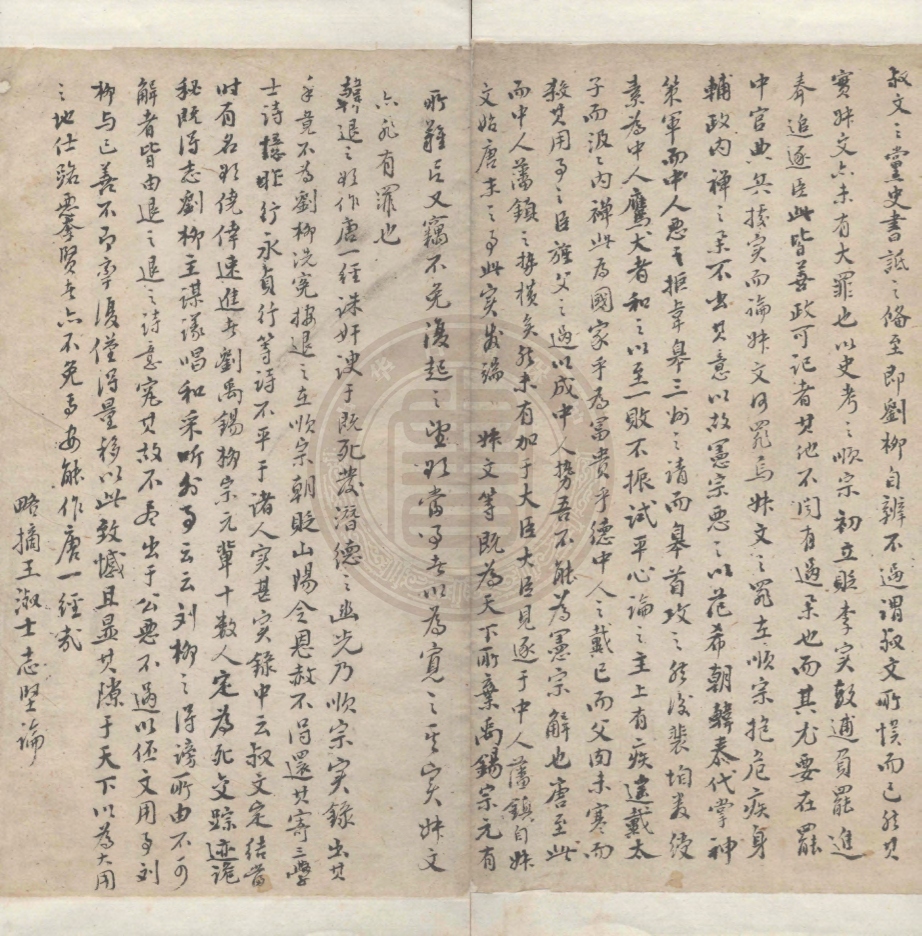 叔文之黨史書詆之俻至即劉柳自辨不過謂叔文所悮而已然其
實叔文亦未有大罪也以史考之順宗初立貶李实敕逋負罷進
奉追逐臣此皆善政可記者其他不聞有過举也而其尤要在罷
中官典兵接实而論叔文何罪焉叔文之罪在順宗抱危疾身
輔政内禅之举不出其意以故憲宗恶之以范希朝韓泰代掌神
策軍而中人恶之拒韋皋三川之請而皋首攻之然後裴垍裁綬
素為中人鷹犬者和之以至一敗不振試平心論之主上有疾遽戴太
子而汲汲内禅此為國家乎為富贵乎德中人之戴己而父肉未寒而
殺其用事之臣雖父之過以成中人势吾不能為憲宗解也唐至此
而中人藩鎮之勢橫矣然未有加于大臣大臣見逐于中人藩鎮自叔
文始唐末之事此实发端 叔文等既為天下所棄禹錫宗元有
所難言又竊不免復起之望然當事者以為寬之其实叔文
亦非有罪也
韓退之欲作唐一经诛奸谀于既死发潛德之幽光乃順宗实錄出其
手竟不為劉柳洗寃按退之在順宗朝貶山陽令恩赦不得還其寄三学
士詩憶昨行永貞行等诗不平于诸人实甚实錄中云叔文定结當
时有名欲僥倖速進者劉禹錫柳宗元輩十数人定為死交踪迹诡
秘既得志劉柳主谋议唱和采听外事云云刘柳之得谤所由不可
解者皆由退之退之诗意寃其故不尽出于公恶不過以伾文用事刘
柳与己善不即牵復僅得量移以此致憾且显其隙于天下以為大用
之地仕路羣贤者亦不免焉安能作唐一经哉
略摘王淑士志坚論